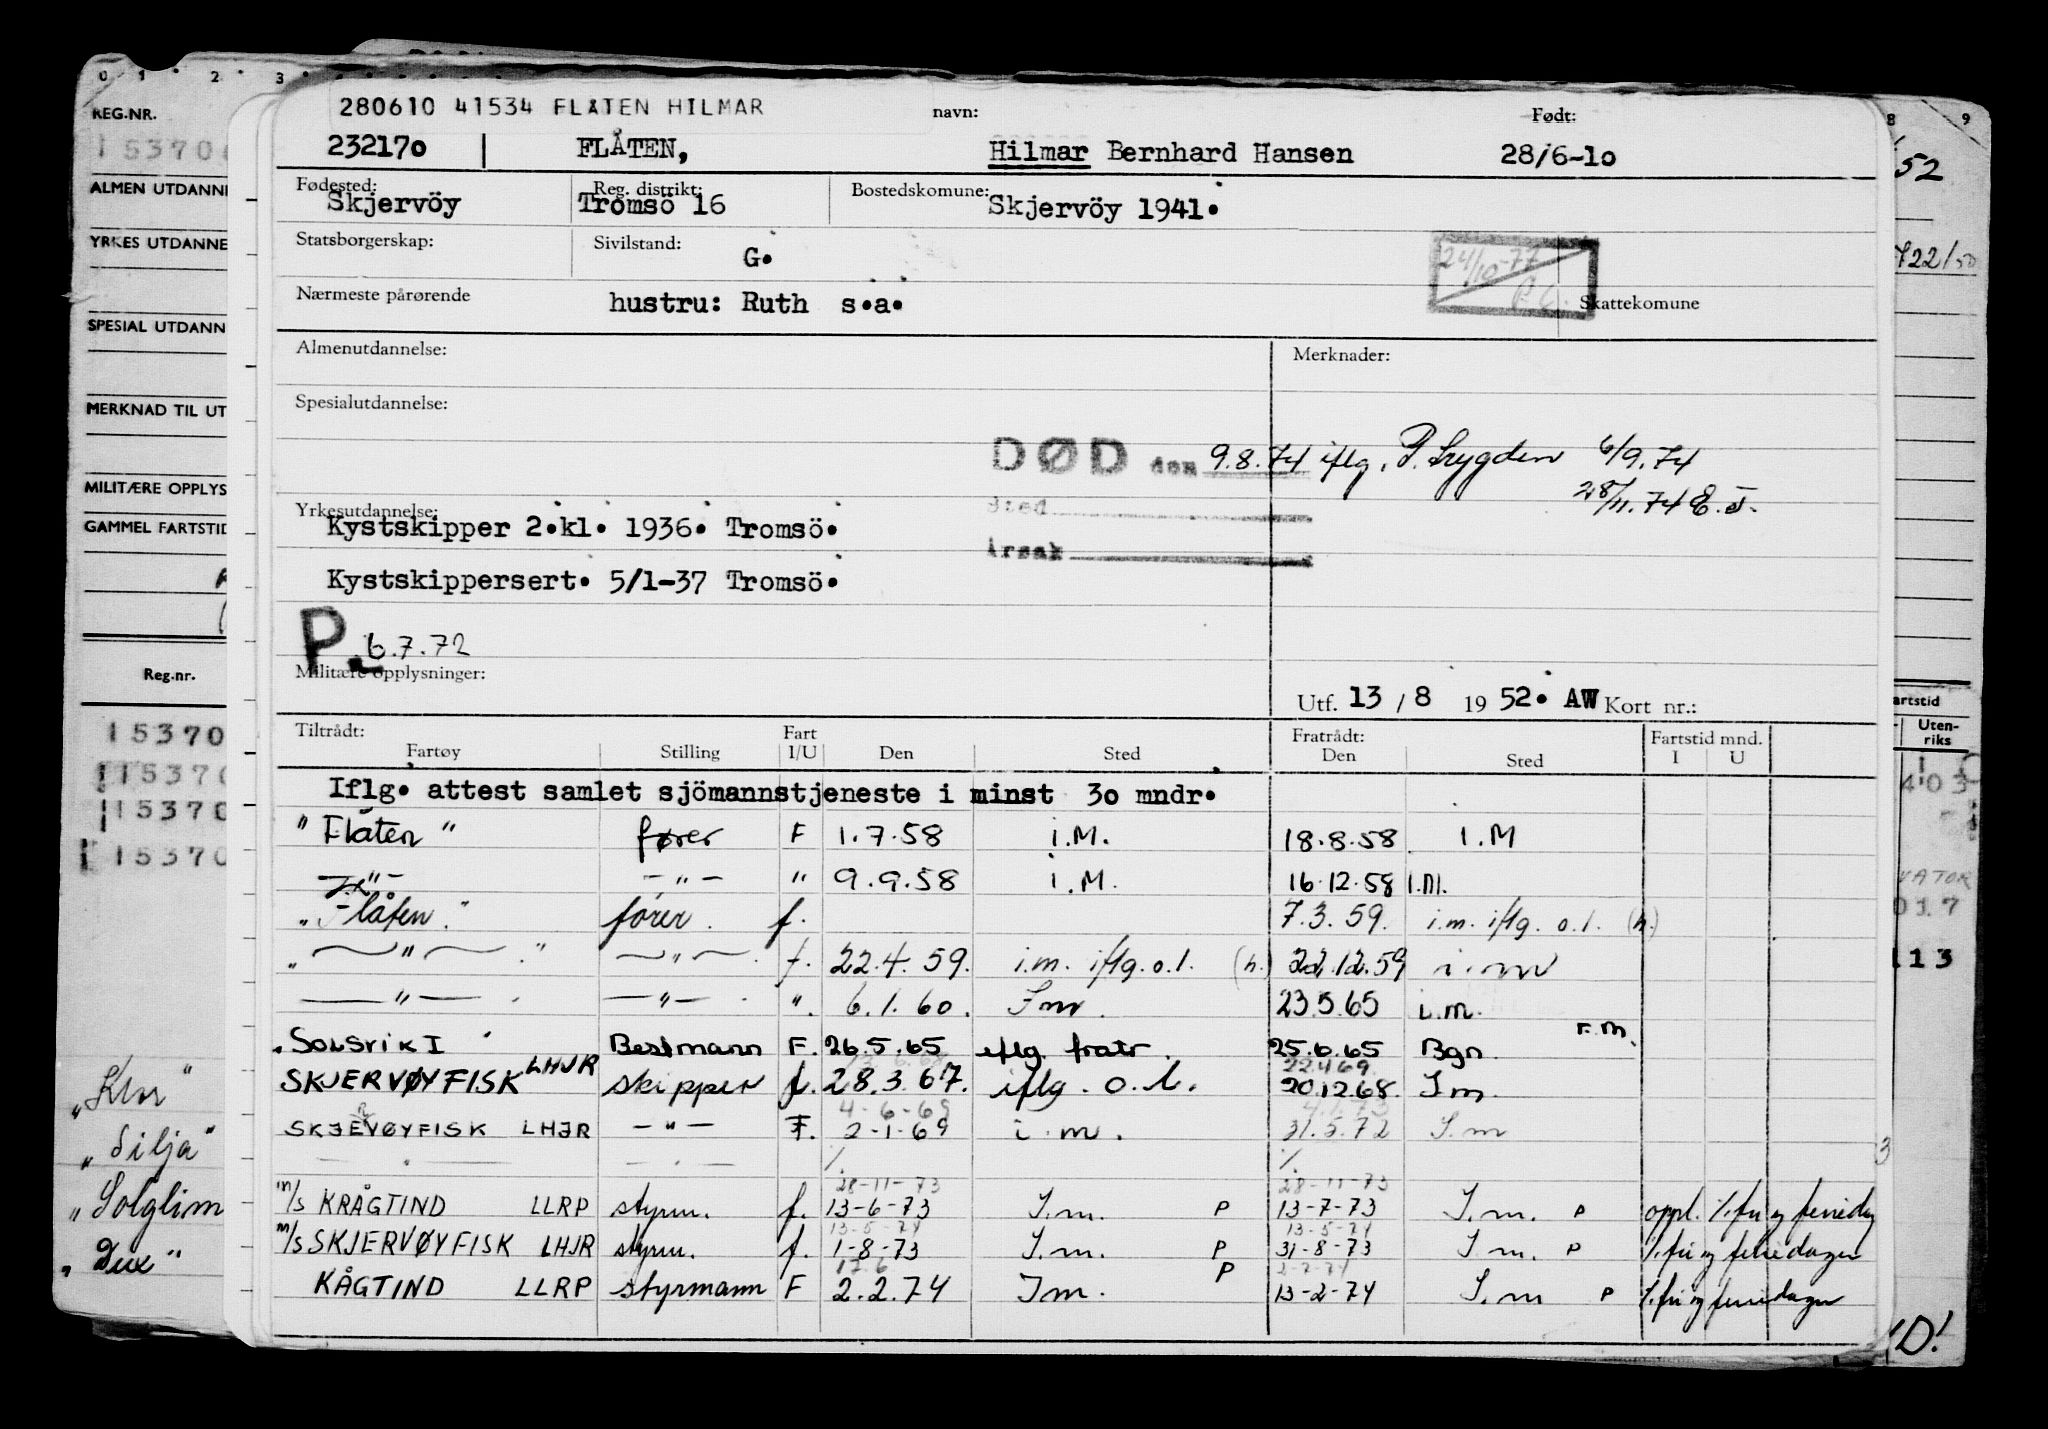 0 1 2 3 8 9
REG.NR.
15370
ALMEN UTDANN
YRKES UTDANNE
SPESIAL UTDANN
MERKNAD TIL UT
MILITÆRE OPPLYS
GAMMEL FARTSTID
Reg.nr.
15370
15370
15370
15370
„Klor"
„Silja"
„Solglim
„Dux"
280610 41534 FLÅTEN HILMAR navn: Født:
232170 FLÅTEN, Hilmar Bernhard Hansen 28/6-10
Fødested: Skjervöy Reg. distrikt: Tromsö 16 Bostedskomune: Skjervöy 1941.
Statsborgerskap: Sivilstand: G.
24/10-77
Nærmeste pårørende hustru: Ruth s.a. Skattekomune
Almenutdannelse: Merknader:
Spesialutdannelse:
DØD den 9.8.74 iflg. P. Trygden 6/9.74
28/11.74 E.J.
Sted
Årsak
Yrkesutdannelse:
Kystskipper 2.kl. 1936. Tromsö.
Kystskippersert. 5/1-37 Tromsö.
P. 6.7.72
Militære opplysninger:
Utf. 13 / 8 19 52. AW Kort nr.:
Tiltrådt: Fart Fratrådt: Fartstid mnd.
Fartøy Stilling I/U Den Sted Den Sted I U
Iflg. attest samlet sjömannstjeneste i minst 30 mndr.
"Flåten" fører F 1.7.58 i.M. 18.8.58 I.M
-"- -"- " 9.9.58 i.M. 16.12.58 I.M.
"Flåten." fører. f. 7.3.59. i.m. iflg. o.l. (h.)
"-"-." -"-. f. 22.4.59. i.m. iflg. o.l. (h.) 22.12.59 i.m
-"-. -"-. ". 6.1.60. Im. 23.5.65 i.m.
F.M.
SOLSVIK I Bestmann F. 26.5.65 iflg. fratr. 25.6.65 Bgn.
22.4.69.
SKJERVØYFISK LHJR skipper f. 28.3.67. iflg. o.l. 20.12.68. Im.
4-6-69 4.1.73
SKJERVØYFISK LHJR -"- F. 2-1-69 i.m. 31.5.72 I.m
-"- -"- %. %.
28-11-73 28-11-73
m/s KRÅGTIND LLRP styrm. f. 13-6-73 I.m. P 13-7-73 I.m. P oppl. %.fri og feriedag
13-5-74 13-5-74
m/s SKJERVØYFISK LHJR styrm. f. 1-8-73 I.m. P 31-8-73 I.m. P %.fri og feriedager
17.6 2-7-74
KÅGTIND LLRP styrmann F 2.2.74 Im. P 13-2-74 I.m P %.fri og feriedager
52
722/50
artstid
Uten-
riks
403
VATOR
017
113
3
D!